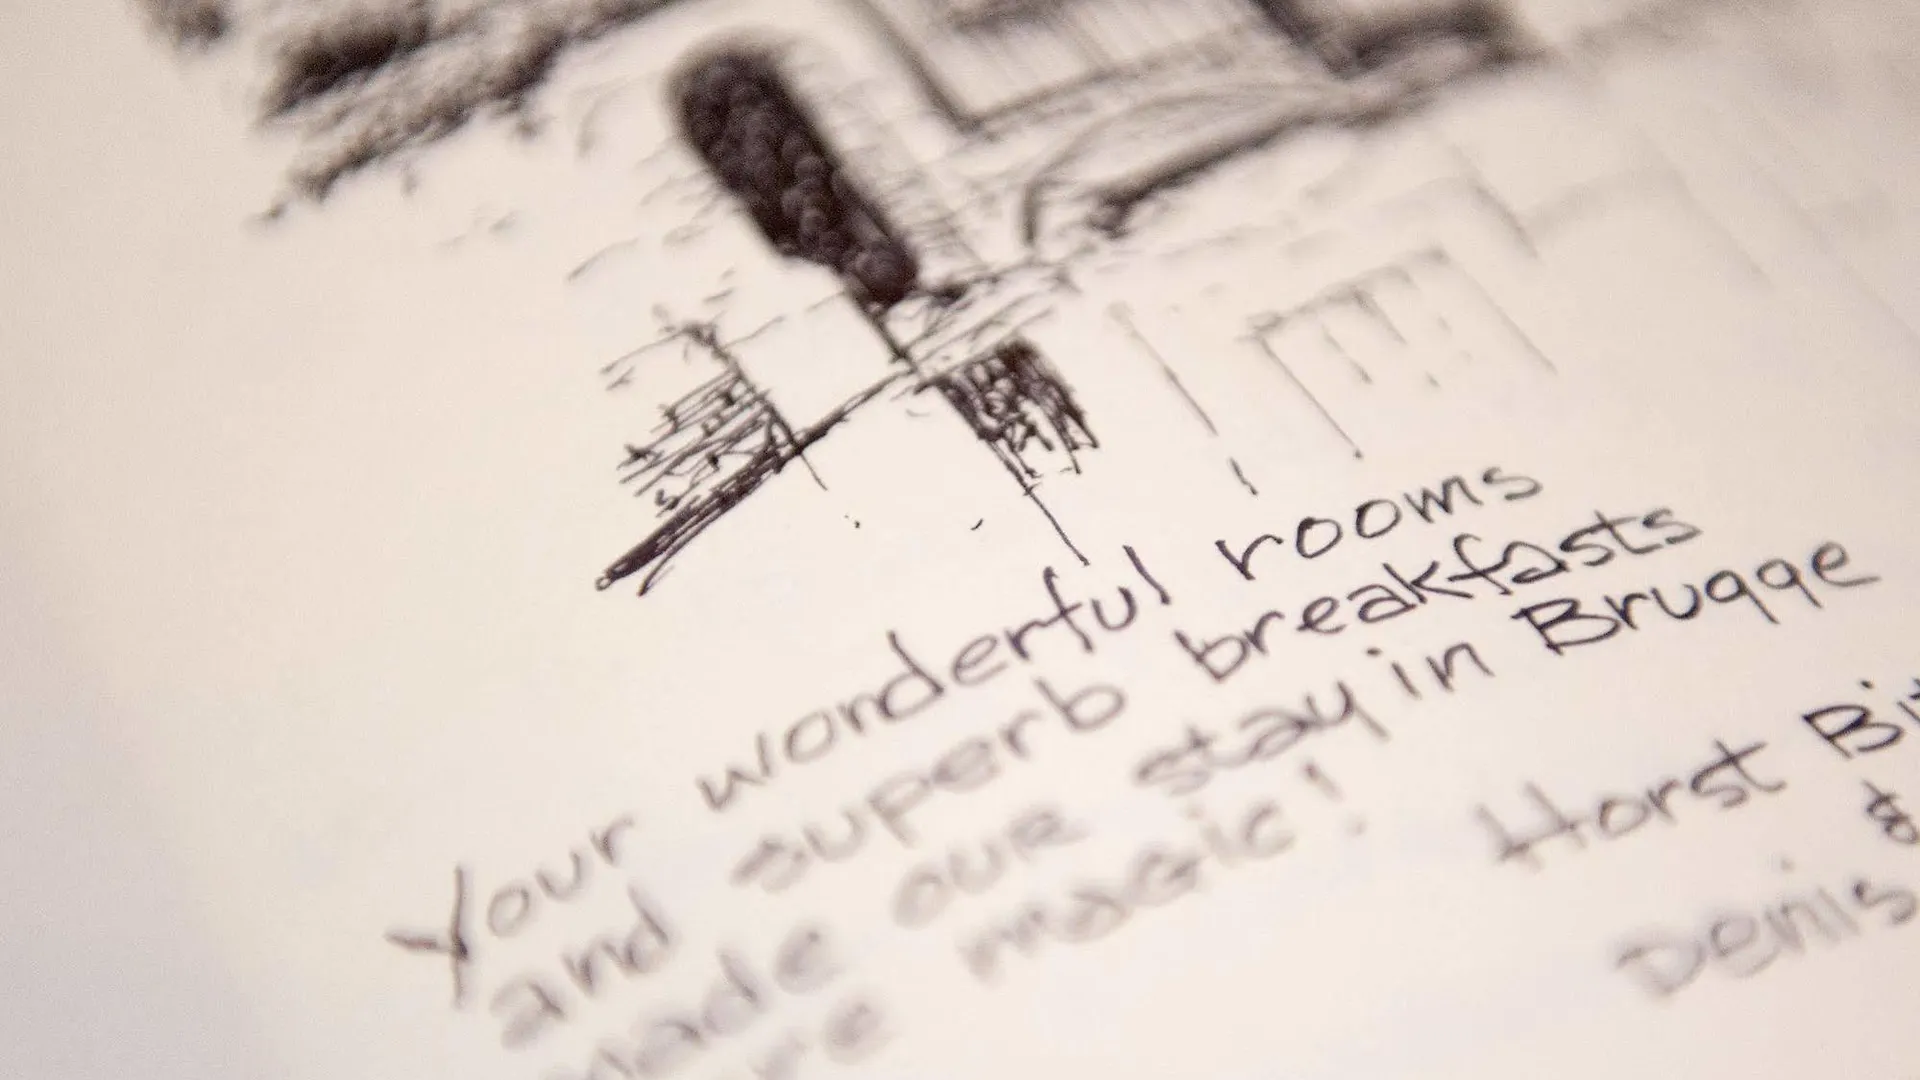 Your wonderful rooms
and superb breakfasts
made our stay in Brugge
magic!
Horst
&
Denis